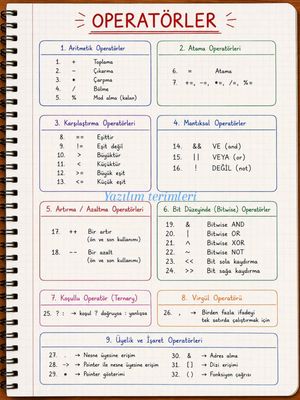 OPERATÖRLER
1. Aritmetik Operatörler
1. + Toplama
2. - Çıkarma
3. * Çarpma
4. / Bölme
5. % Mod alma (kalan)
2. Atama Operatörleri
6. = Atama
7. +=, -=, *=, /=, %=
3. Karşılaştırma Operatörleri
8. == Eşittir
9. != Eşit değil
10. > Büyüktür
11. < Küçüktür
12. >= Büyük eşit
13. <= Küçük eşit
4. Mantıksal Operatörler
14. && VE (and)
15. || VEYA (or)
16. ! DEĞİL (not)
Yazılım terimleri
5. Artırma / Azaltma Operatörleri
17. ++ Bir artır
(ön ve son kullanımı)
18. -- Bir azalt
(ön ve son kullanımı)
6. Bit Düzeyinde (Bitwise) Operatörler
19. & Bitwise AND
20. | Bitwise OR
21. ^ Bitwise XOR
22. ~ Bitwise NOT
23. << Bit sola kaydırma
24. >> Bit sağa kaydırma
7. Koşullu Operatör (Ternary)
25. ? : → koşul ? doğruysa : yanlışsa
8. Virgül Operatörü
26. , → Birden fazla ifadeyi
tek satırda çalıştırmak için
9. Üyelik ve İşaret Operatörleri
27. . → Nesne üyesine erişim
28. -> → Pointer ile nesne üyesine erişim
29. * → Pointer gösterimi
30. & → Adres alma
31. [] → Dizi erişimi
32. () → Fonksiyon çağrısı